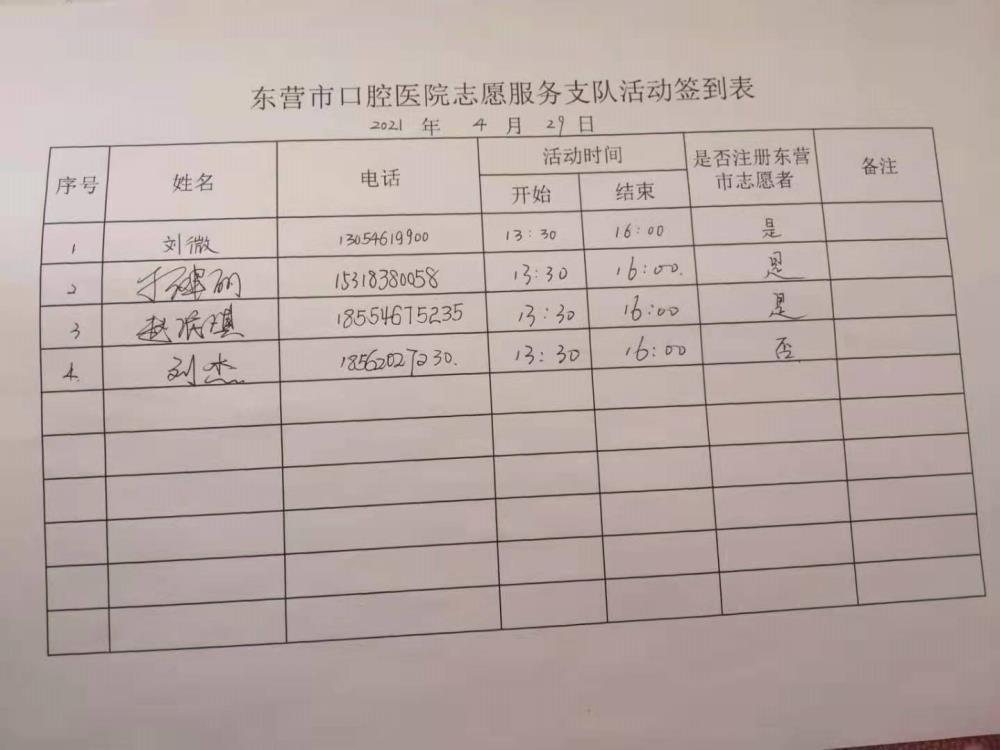 东营市口腔医院志愿服务支队活动签到表
2021 年 4 月 29 日
序号 姓名 电话 活动时间 开始 结束 是否注册东营市志愿者 备注
1 刘微 13054619900 13:30 16:00 是
2 15318380058 13:30 16:00. 是
3 18554675235 13:30 16:00 是
4. 刘杰 18562027230. 13:30 16:00 否